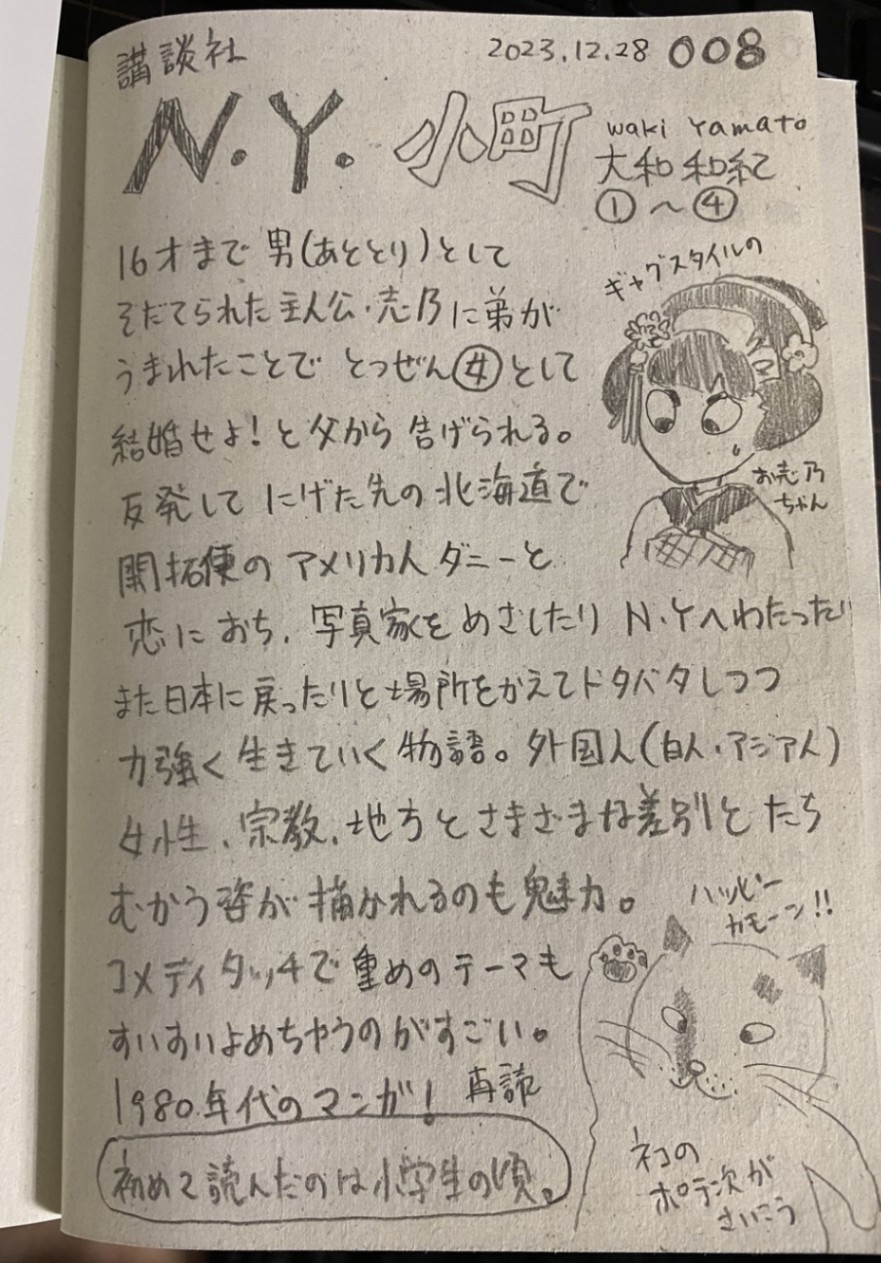 講談社
2023.12.28 008
N.Y.小町
waki Yamato
大和和紀
①～④
16才まで男(あととり)として
そだてられた主人公・志乃に弟が
うまれたことでとつぜん㊛として
結婚せよ!と父から告げられる。
反発してにげた先の北海道で
開拓使のアメリカ人ダニーと
恋におち、写真家をめざしたりN.Yへわたったり
また日本に戻ったりと場所をかえてドタバタしつつ
力強く生きていく物語。外国人(白人・アジア人)
女性、宗教、地方とさまざまな差別とたち
むかう姿が描かれるのも魅力。
コメディタッチで重めのテーマも
すいすいよめちゃうのがすごい。
1980年代のマンガ! 再読
初めて読んだのは小学生の頃。
ギャグスタイルの
お志乃
ちゃん
ハッピー
カモーン!!
ネコの
ポテ次が
さいこう